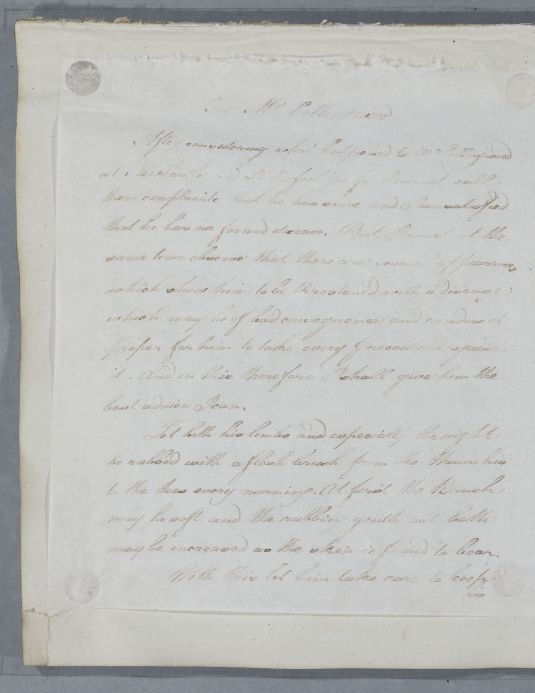 For Mr Collingwood
After considering what happened to Mr Collingwood
at and all
these complaints that he has since had I am satisfied
that he has no formed disease. But I must at the
same time observe that there are several appearances
which shew him to be threatened with a disease
which may be of bad consequence and renders it
proper for him to take every precaution against
it. And in this therefore I shall give him the
best advice I can.
Let both his limbs and especially the right
be rubbed with a flesh brush from the Haunches
to the toes every morning. At first the Brush
may be soft and the rubbing gentle but both
may be increased as the skin is found to bear.
With this let him take care to keep
his